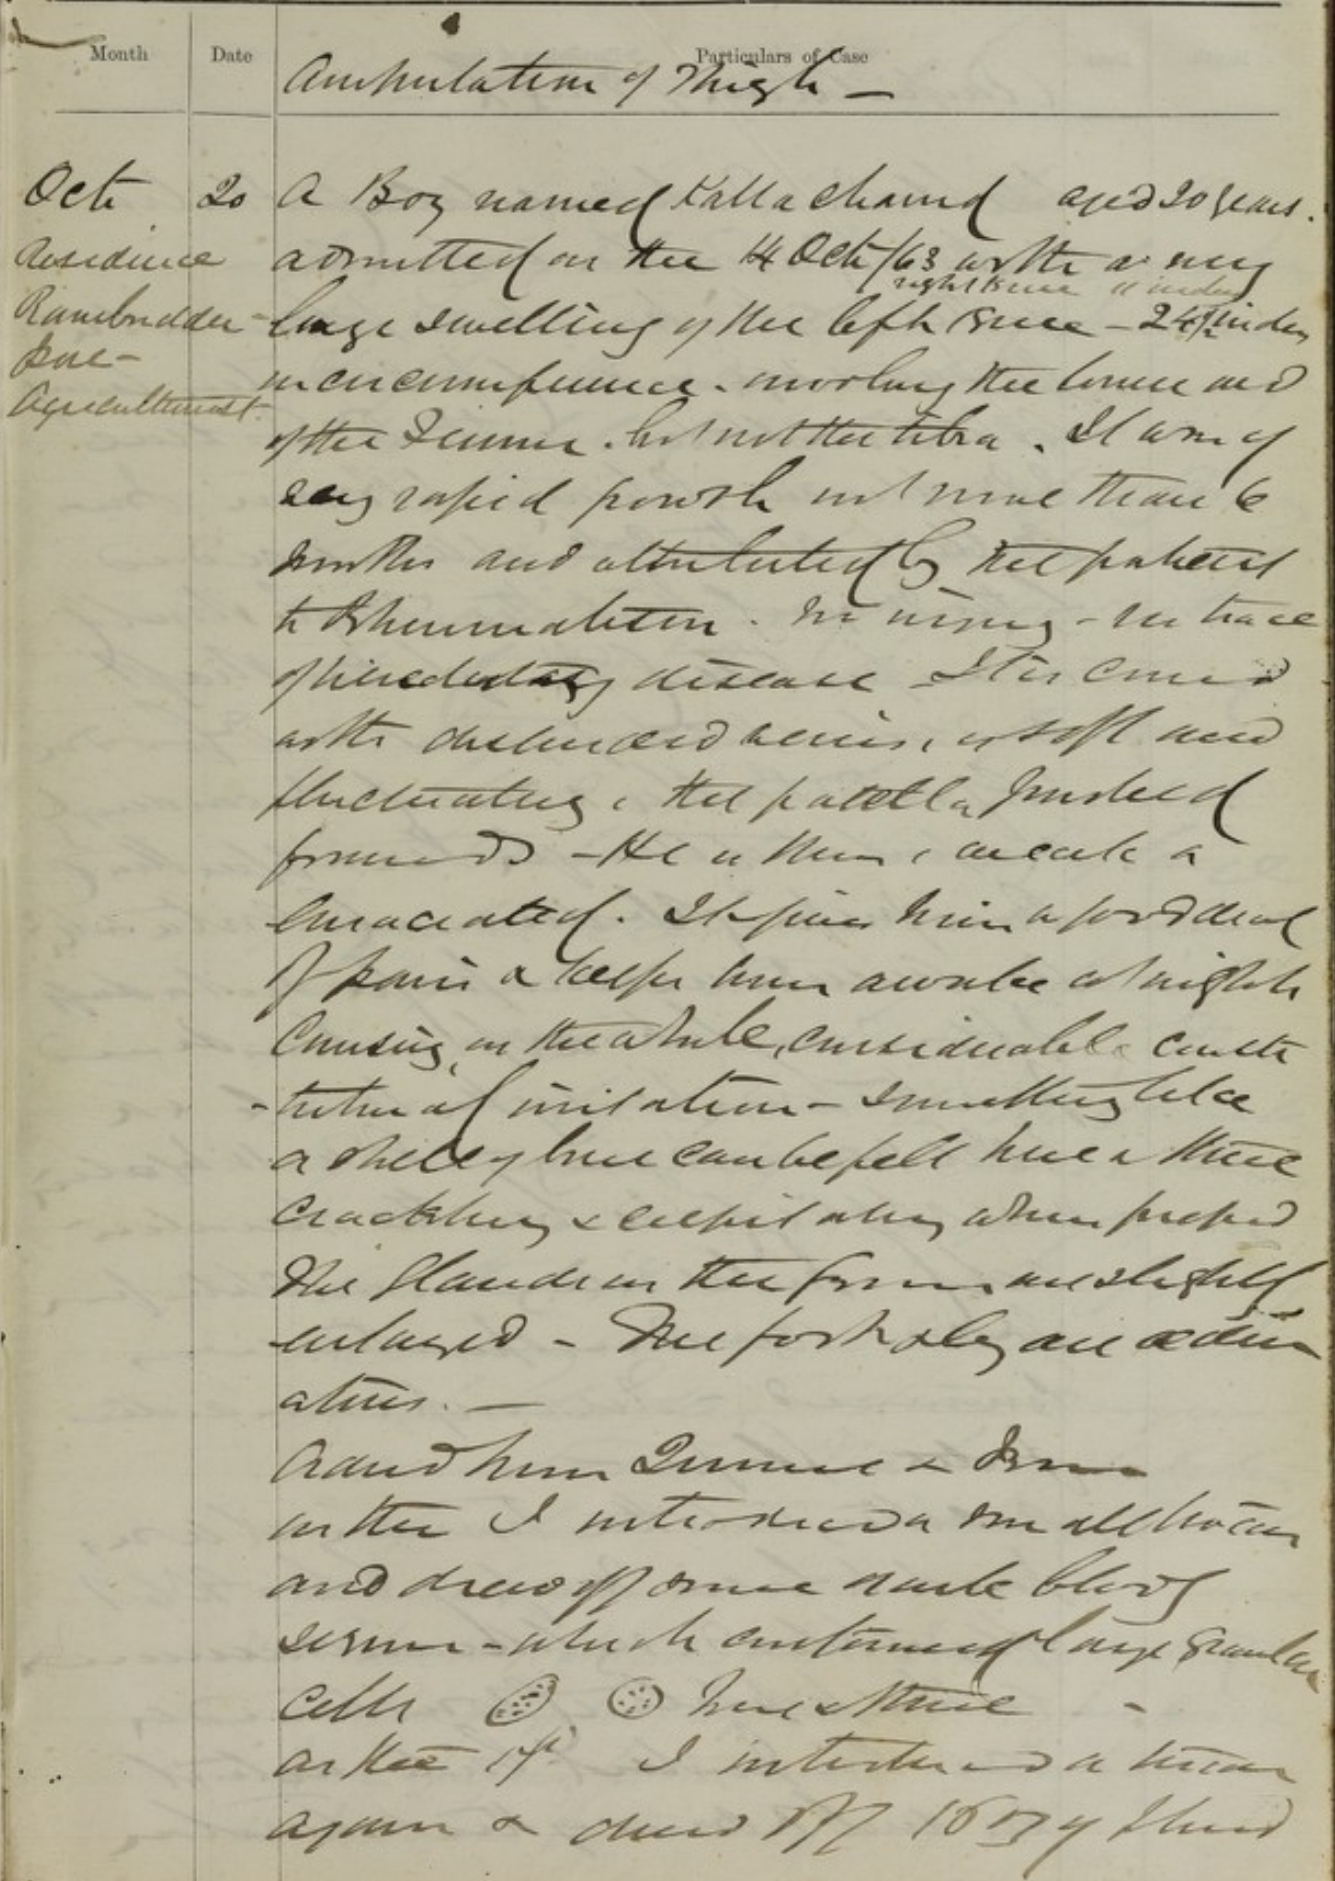 Month Date Particulars of Case
Amputation of Thigh —
Oct 20 A Boy named Kallachand aged 20 years.
Residence
admitted on the 14 Oct/63 with a very
right knee
large swelling of the left knee – 24½ inches
Agriculturist
in circumference. involving the lower end
of the Femur. but not the tibia. It was of
very rapid growth not more than 6
months and attributed by the patient
to Rheumatism. No injury – no trace
of hereditary disease – It is covered
with distended veins, is soft and
fluctuating, the patella pushed
forwards – He is thin, weak &
emaciated. It gives him a good deal
of pain & keeps him awake at night
Causing, on the whole, considerable consti
-tutional irritation – something like
a shell of bone can be felt here & there
crackling & crepitating when pressed
The Glands in the groin are slightly
enlarged – The foot & leg are oedem
atous. —
Ordered him Quinine & Iron
on the I introduced a small trocar
and drew off some dark bloody
serum – which contained large granular
cells here & there –
on the I introduced a trocar
again & drew off of fluid